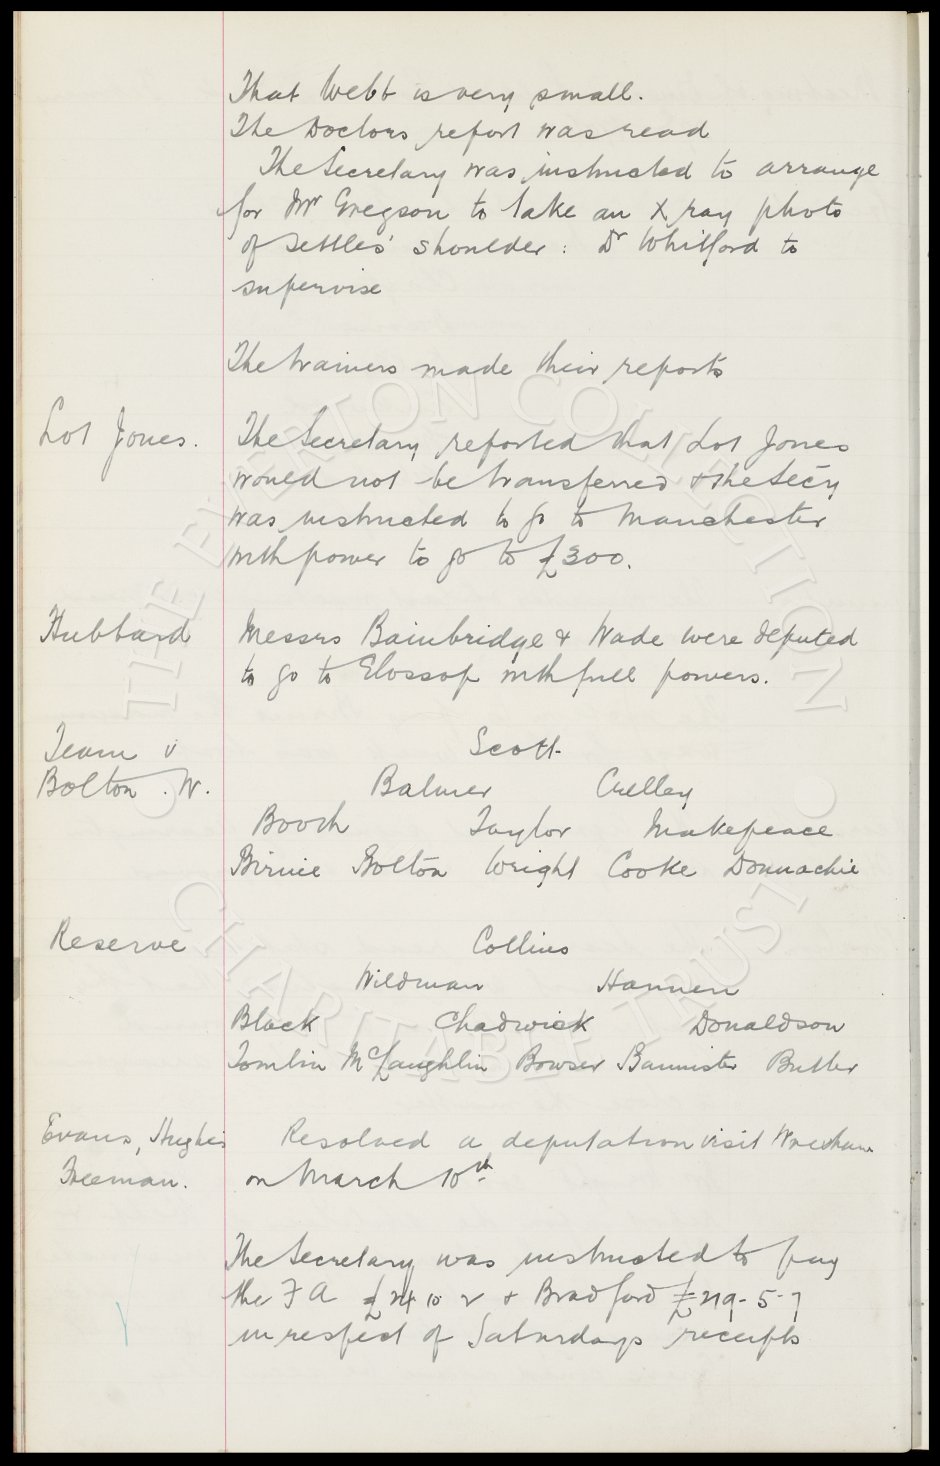 That Webb is very small.
The Doctors report was read
The Secretary was instructed to arrange
for Mr Gregson to take an X ray photo
of Settles' shoulder : Dr Whitford to
supervise
The trainers made their reports
Lot Jones.
The Secretary reported that Lot Jones
would not be transferred & the Secy
was instructed to go to Manchester
with power to go to £300.
Hubbard
Messrs Bainbridge & Wade were deputed
to go to Glossop with full powers.
Team v
Bolton . W.
Scott
Balmer Crelley
Booth Taylor Makepeace
Birnie Bolton Wright Cooke Donnachie
Reserve
Collins
Wildman Hannen
Black Chadwick Donaldson
Tomlin McLaughlin Bowser Bannister Butler
Evans, Hughes
Freeman.
Resolved a deputation visit Wrexham
on March 10th.
The Secretary was instructed to pay
the F A & Bradford
in respect of Saturdays receipts
THE EVERTON COLLECTION
CHARITABLE TRUST